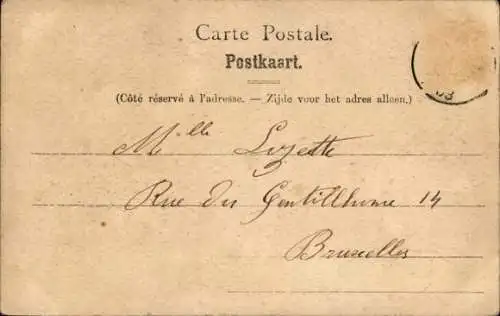 Carte Postale.
Postkaart.
(Côté réservé à l'adresse. — Zijde voor het adres alleen.)
Mlle Lozette
Rue du Gentilhome 14
Bruxelles
03